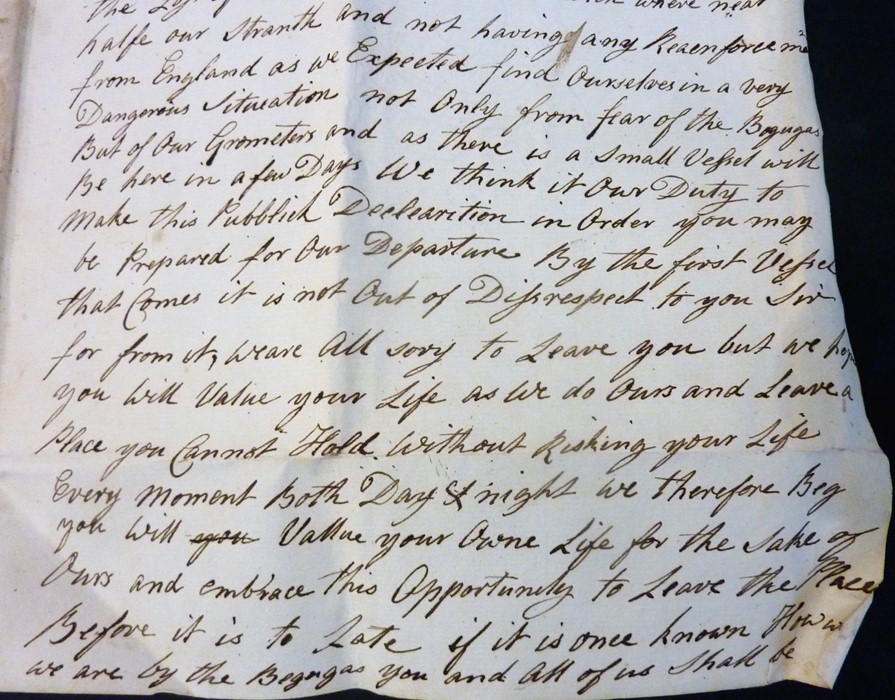 the where near
halfe our Stranth and not having any Reaenforceme
from England as we Expected find Ourselves in a very
Dangerous Situeation not Only from fear of the Begugas
But of Our Grometers and as there is a Small Vessel will
Be here in a few Days We think it Our Duty to
Make this Pubblick Declearition in Order you may
be Prepared for Our Departure By the first Vessel
that Comes it is not Out of Dissrespect to you Sir
for from it, weare All sory to Leave you but we hop
you will Value your Life as We do Ours and Leave a
Place you Cannot Hold Without Risking your Life
Every Moment Both Day & night we therefore Beg
you will you Vallue your Owne Life for the Sake of
Ours and embrace this Opportunity to Leave the Place
Before it is to Late if it is once known How w
we are by the Begugas you and All of us Shall be